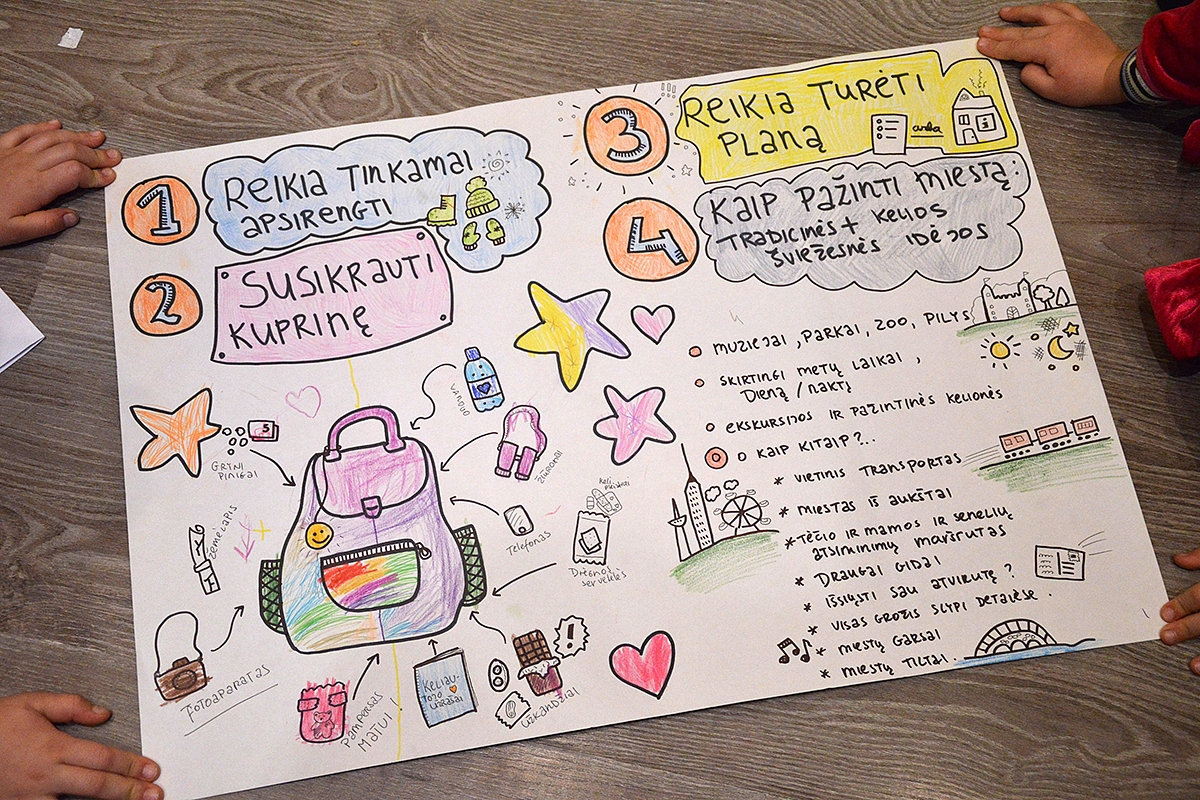 1
REIKIA TINKAMAI
APSIRENGTI
2
SUSIKRAUTI
KUPRINĘ
VANDUO
5
GRYNI
PINIGAI
ŽIŪRONAI
KELI
PLEISTRAI
TELEFONAS
DRĖGNOS
SERVETĖLĖS
ŽEMĖLAPIS
FOTOAPARATAS
PAMPERSAS
MATUI!
KELIAU-
TOJO
UŽRAŠAI
!
UŽKANDŽIAI
3
REIKIA TURĖTI
PLANĄ
arba
i
4
KAIP PAŽINTI MIESTĄ:
TRADICINĖS + KELIOS
ŠVIEŽESNĖS IDĖJOS
MUZIEJAI, PARKAI, ZOO, PILYS
SKIRTINGI METŲ LAIKAI,
DIENĄ / NAKTĮ
EKSKURSIJOS IR PAŽINTINĖS KELIONĖS
KAIP KITAIP?..
* VIETINIS TRANSPORTAS
* MIESTAS IŠ AUKŠTAI
* TĖČIO IR MAMOS IR SENELIŲ
ATSIMINIMŲ MARŠRUTAS
* DRAUGAI GIDAI
* IŠSIŲSTI SAU ATVIRUTĘ?
* VISAS GROŽIS SLYPI DETALĖSE.
* MIESTŲ GARSAI
* MIESTŲ TILTAI.